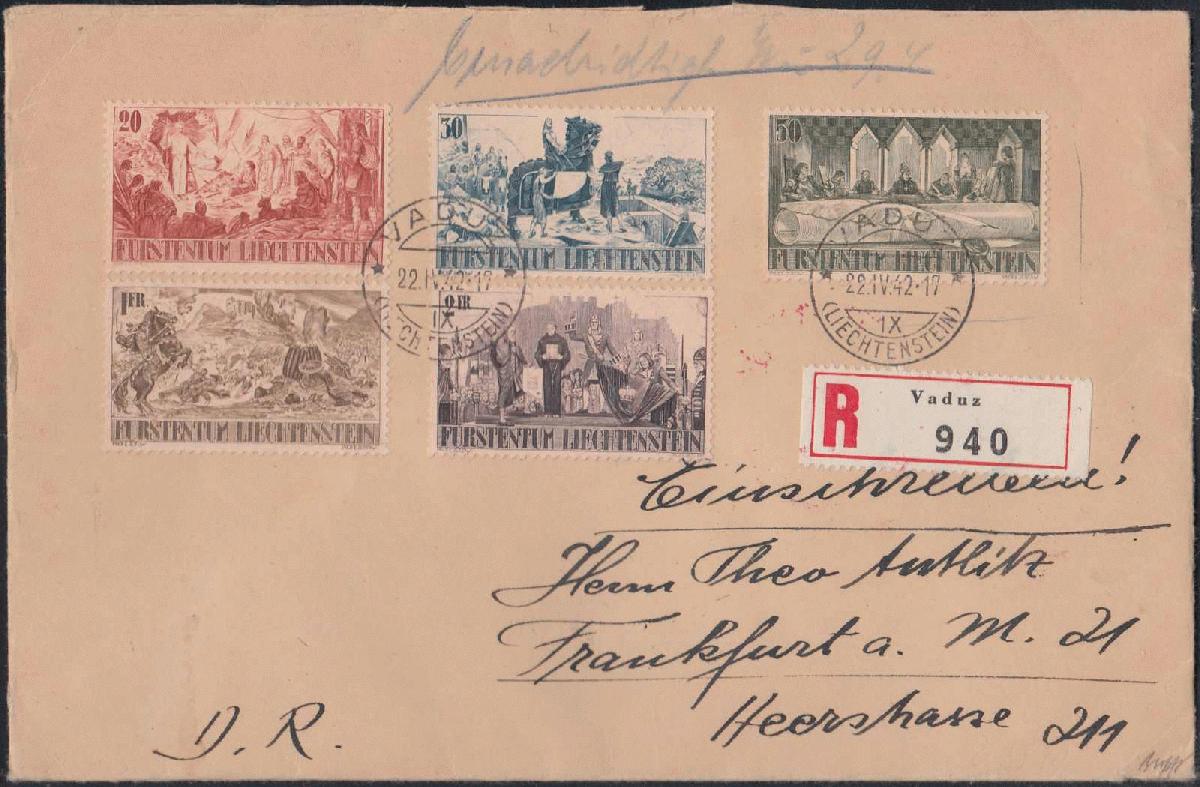 Benachrichtigt 29.4
20
FÜRSTENTUM LIECHTENSTEIN
30
FÜRSTENTUM LIECHTENSTEIN
50
FÜRSTENTUM LIECHTENSTEIN
1 FR
FÜRSTENTUM LIECHTENSTEIN
2 FR
FÜRSTENTUM LIECHTENSTEIN
VADUZ
22.IV.42-17
IX
(LIECHTENSTEIN)
VADUZ
22.IV.42-17
IX
(LIECHTENSTEIN)
R
Vaduz
940
Einschreiben!
Herrn Theo Antlitz
Frankfurt a. M. 21
Heerstrasse 211
D. R.